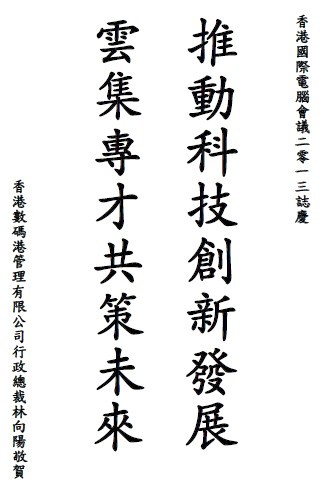 香港國際電腦會議二零一三誌慶
推動科技創新發展
雲集專才共策未來
香港數碼港管理有限公司行政總裁林向陽敬賀